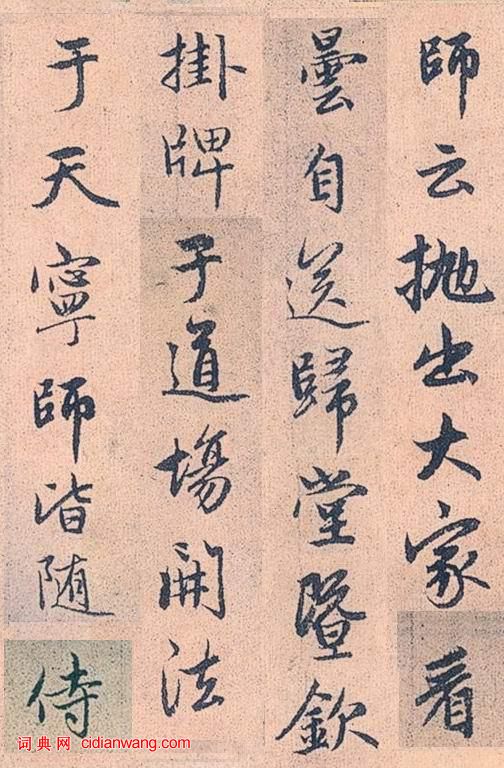 師云拋出大家看
曇自送歸堂暨欽
掛牌于道場開法
于天寧師皆随侍
词典网 cidianwang.com